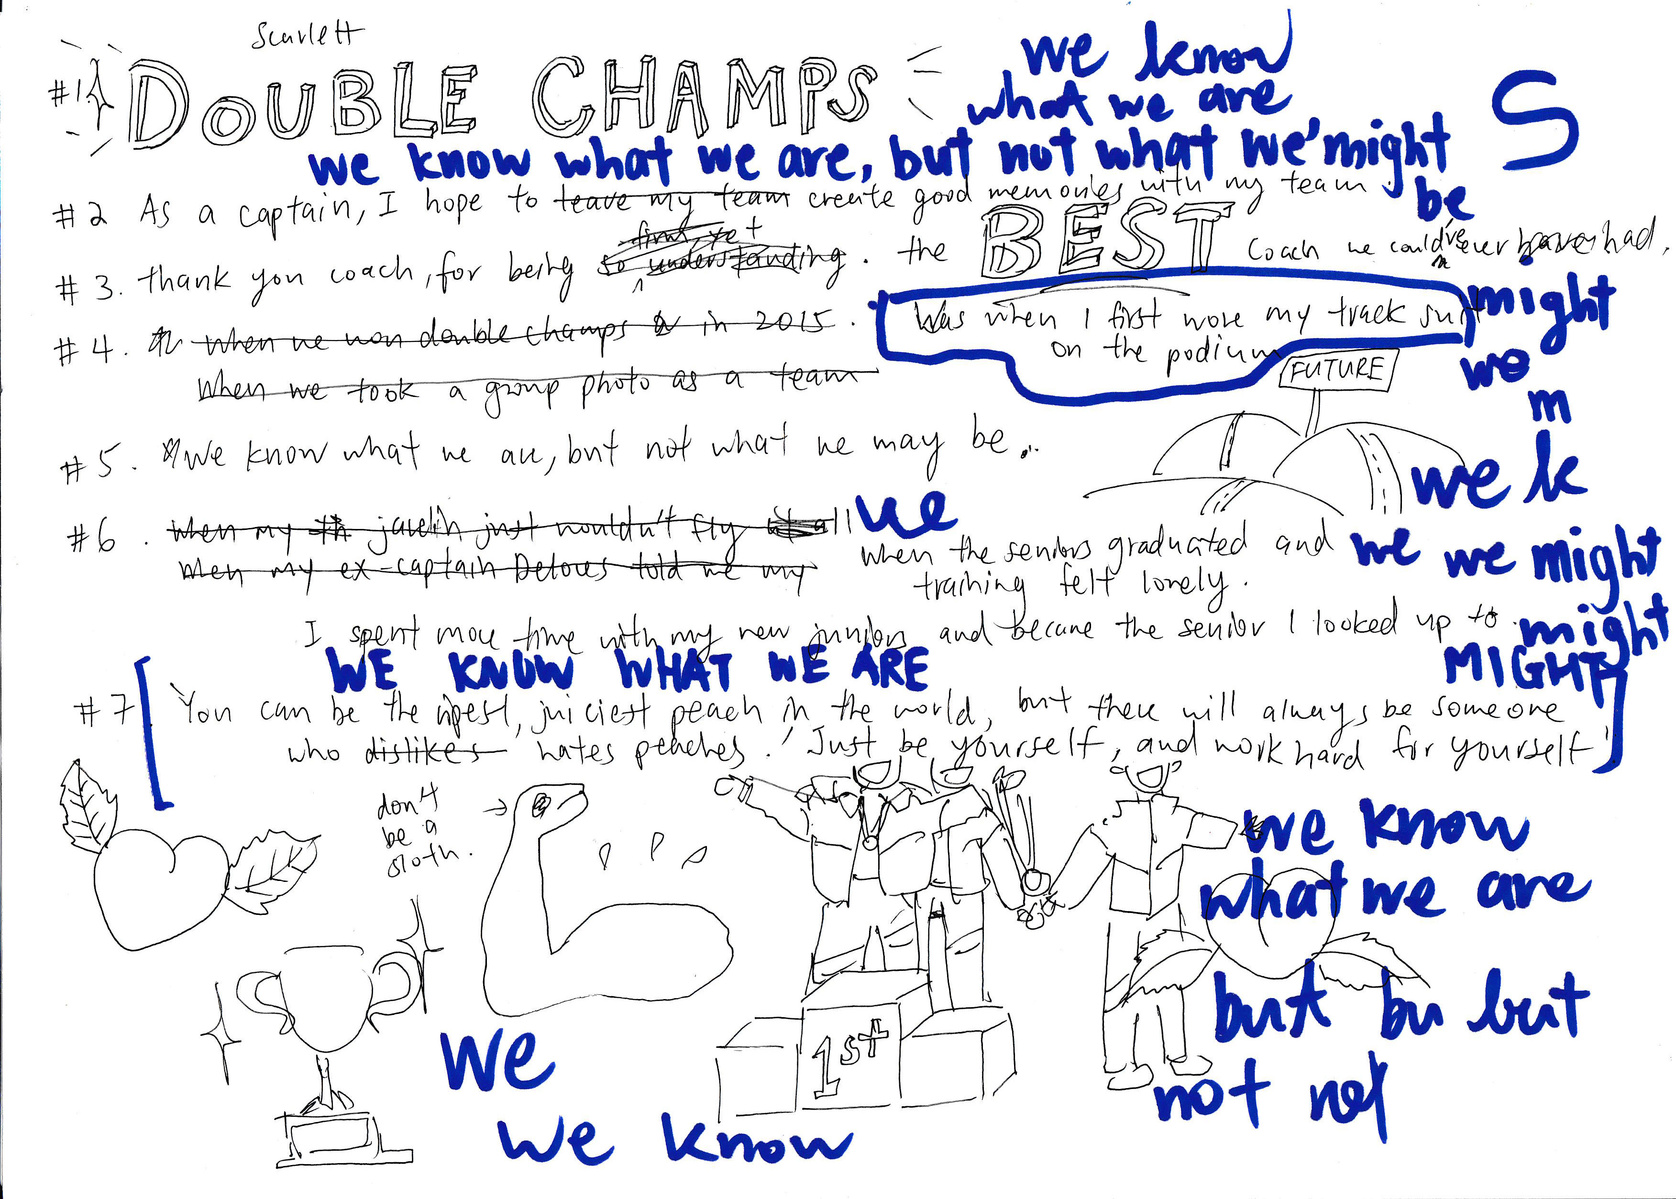 Scarlett
#1 DOUBLE CHAMPS
we know
what we are
S
we know what we are, but not what we might
be
#2 As a captain, I hope to leave my team create good memories with my team.
first yet
#3. thank you coach, for being so understanding. the BEST coach we could've ever have had.
#4. when we won double champs in 2015. Was when I first wore my track suit
on the podium
When we took a group photo as a team
might
we
m
FUTURE
#5. We know what we are, but not what we may be.
we k
#6. when my javelin just wouldn't fly at all
we
When my ex-captain told me my
when the seniors graduated and
training felt lonely.
we we might
I spent more time with my new juniors and became the senior I looked up to.
might
MIGHT
WE KNOW WHAT WE ARE
#7 You can be the ripest, juiciest peach in the world, but there will always be someone
who dislikes hates peaches. Just be yourself, and work hard for yourself!
don't
be a
sloth.
we know
what we are
but bu but
not not
1st
we
we know